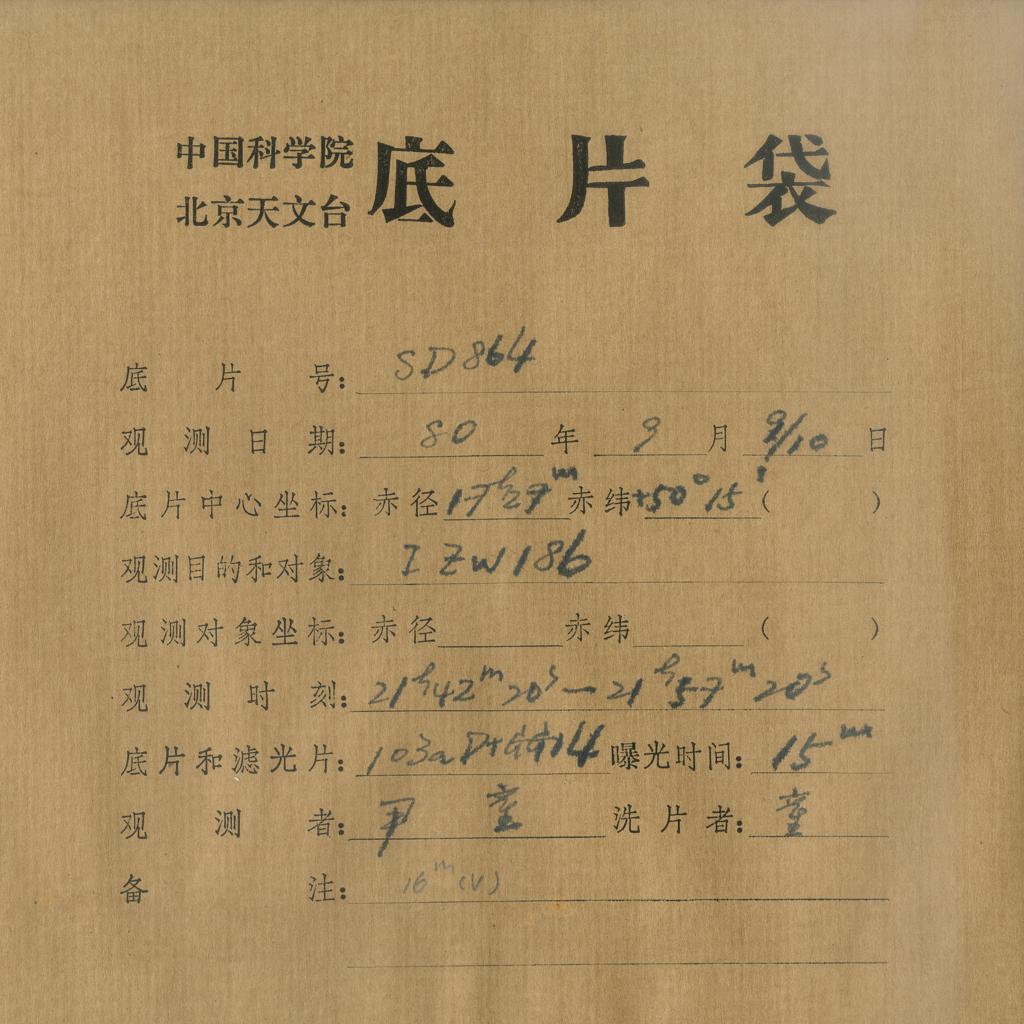 中国科学院
北京天文台
底片袋
底片号: SD864
观测日期: 80 年 9 月 9/10 日
底片中心坐标: 赤径 17ʰ27ᵐ 赤纬 +50°15′ ( )
观测目的和对象: I ZW186
观测对象坐标: 赤径 赤纬 ( )
观测时刻: 21ʰ42ᵐ20ˢ—21ʰ57ᵐ20ˢ
底片和滤光片: 103aD+ 14 曝光时间: 15ᵐ
观测者: 尹 童 洗片者: 童
备注: 16ᵐ(V)